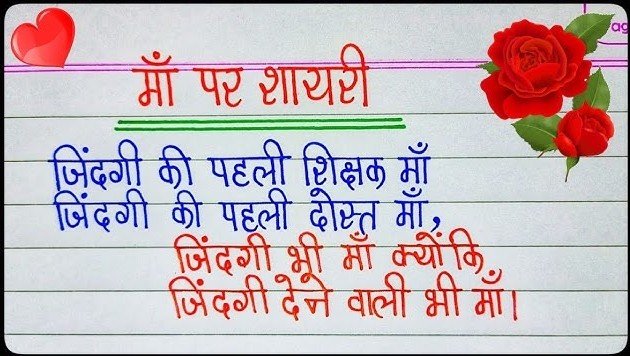 माँ पर शायरी
ज़िंदगी की पहली शिक्षक माँ
ज़िंदगी की पहली दोस्त माँ,
ज़िंदगी भी माँ क्योंकि
ज़िंदगी देने वाली भी माँ।